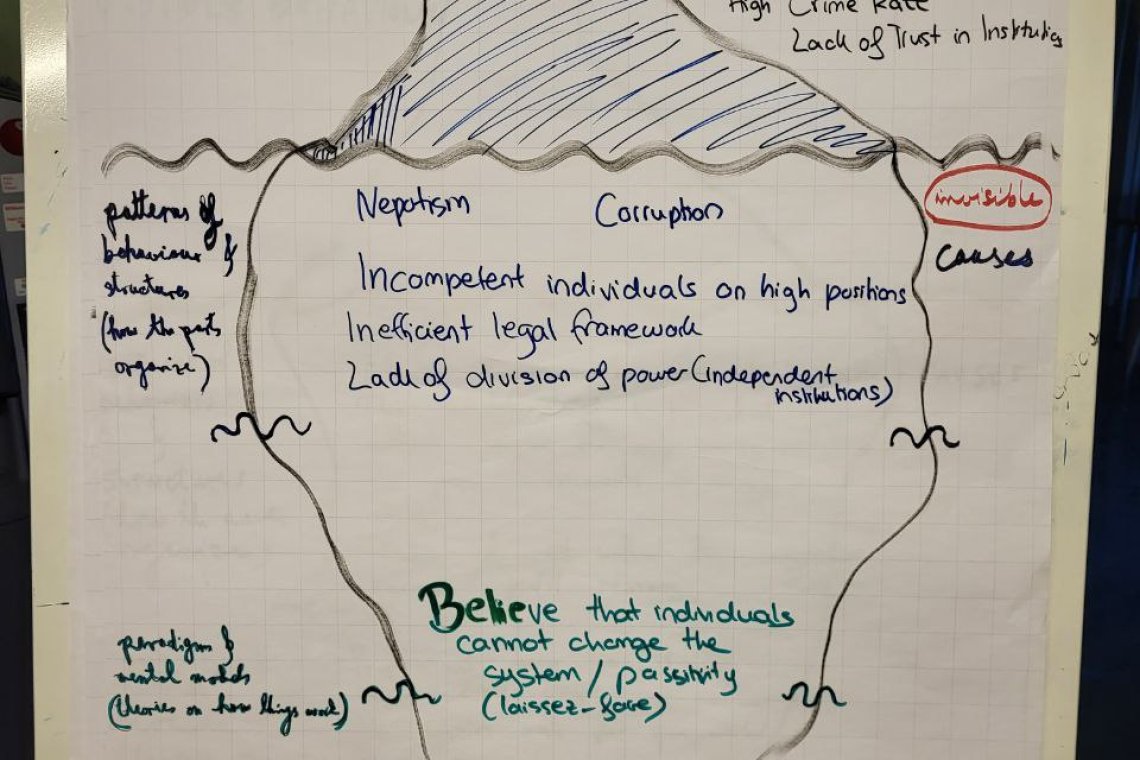 High Crime Rate
Lack of Trust in Institutions
invisible
causes
patterns of
behaviour &
structures
(how the parts
organize)
Nepotism Corruption
Incompetent individuals on high positions
Inefficient legal framework
Lack of division of power (independent
institutions)
Believe that individuals
cannot change the
system / passitivity
(laissez-faire)
paradigms &
mental models
(theories on how things work)